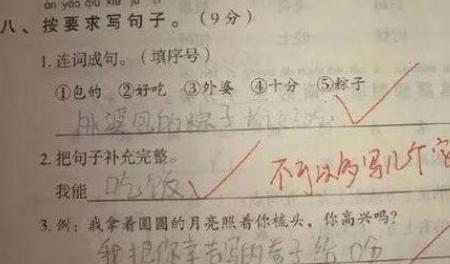 àn yāo qiú xiě jù
八、按要求写句子。(9分)
1.连词成句。(填序号)
①包的 ②好吃 ③外婆 ④十分 ⑤粽子
外婆包的粽子十分好吃
2.把句子补充完整。
我能 吃饭 不可以多写几个字
3.例:我拿着圆圆的月亮照着你梳头,你高兴吗?
我把你辛苦写的卷子给0分